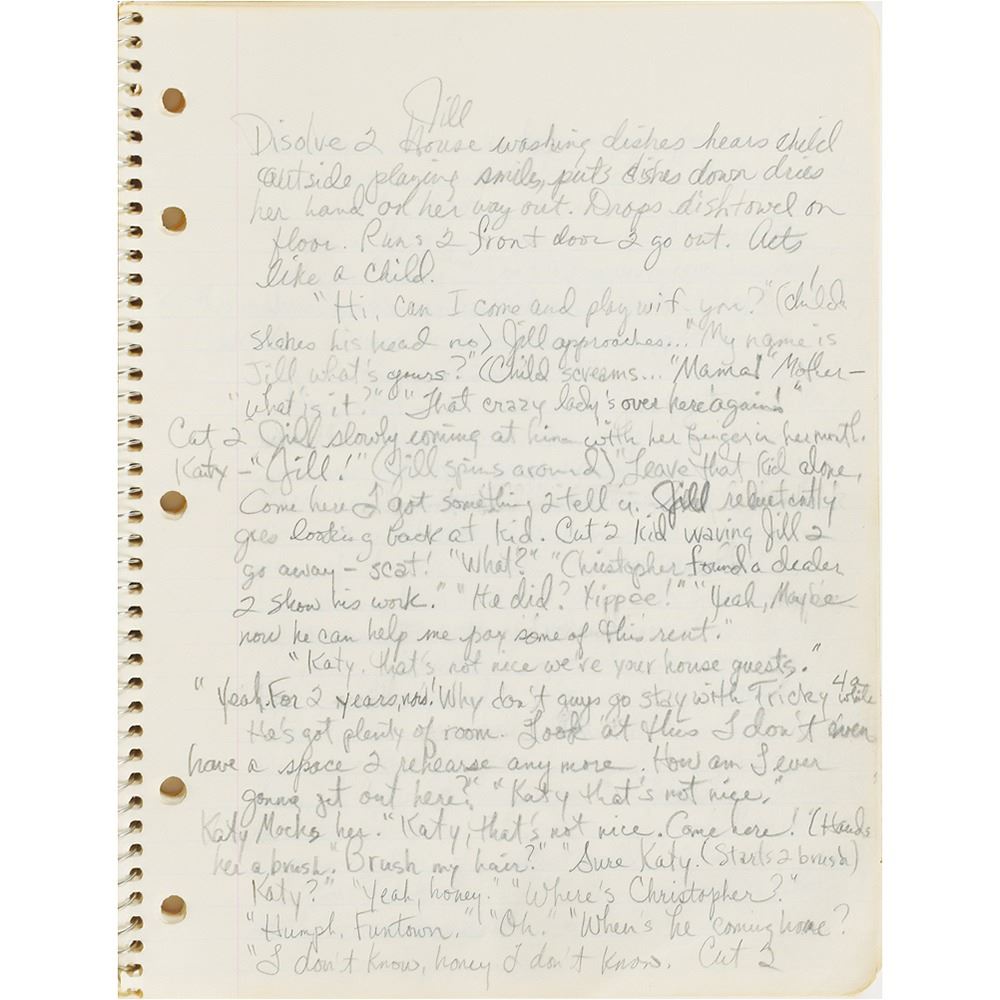 Jill
Disolve 2 House washing dishes hears child
outside playing smiles, puts dishes down dries
her hand on her way out. Drops dishtowel on
floor. Runs 2 front door 2 go out. Acts
like a child.
"Hi, can I come and play wif you?" (child
shakes his head no) Jill approaches... "My name is
Jill what's yours?" (Child screams... "Mama!" Mother—
"what is it?" "That crazy lady's over here again!"
Cut 2 Jill slowly coming at him with her finger in her mouth.
Katy – "Jill!" (Jill spins around) "Leave that kid alone,
Come here I got something 2 tell u. Jill reluctantly
goes looking back at kid. Cut 2 kid waving Jill 2
go away – scat! "What?" "Christopher found a dealer
2 show his work." "He did? Yippee!" "Yeah, Maybe
now he can help me pay some of this rent."
"Katy, that's not nice we're your house guests."
"Yeah. For 2 years, now! Why don't guys go stay with Tricky 4 a while
He's got plenty of room. Look at this I don't even
have a space 2 rehearse any more. How am I ever
gonna get out here?" "Katy that's not nice."
Katy Mocks her. "Katy, that's not nice. Come here! (Hands
her a brush. "Brush my hair?" "Sure Katy. (Starts 2 brush)
Katy?" "Yeah, honey." "Where's Christopher?"
"Humph, Funtown." "Oh." "When's he coming home?
"I don't know, honey I don't know. Cut 2